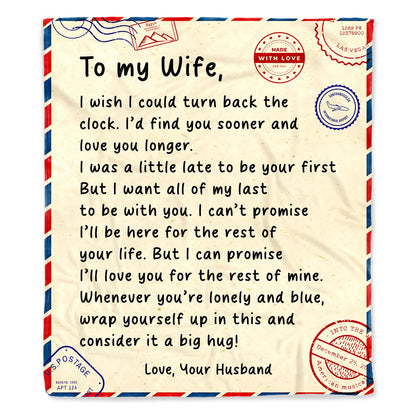 1289 F9
12378900
LAS VEGA
MADE
WITH LOVE
FOR YOU
To my Wife,
I wish I could turn back the
clock. I'd find you sooner and
love you longer.
I was a little late to be your first
But I want all of my last
to be with you. I can't promise
I'll be here for the rest of
your life. But I can promise
I'll love you for the rest of mine.
Whenever you're lonely and blue,
wrap yourself up in this and
consider it a big hug!
Love, Your Husband
POSTAGE
APT 124
INTO THE
December 25, 20
American musica